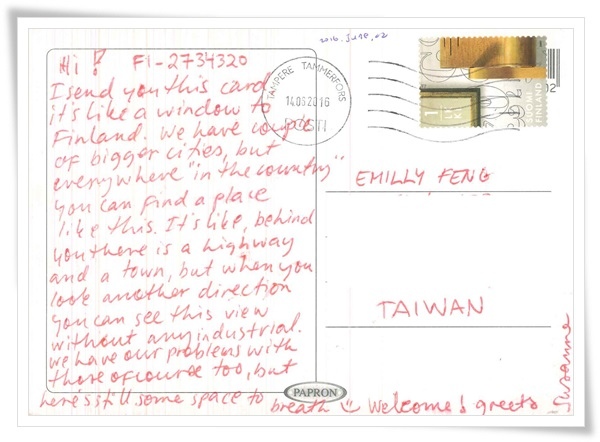 2016. June, 02
Hi! FI-2734320
I send you this card
it's like a window to
Finland. We have couple
of bigger cities, but
everywhere "in the country"
you can find a place
like this. It's like, behind
you there is a highway
and a town, but when you
look another direction
you can see this view
without any industrial.
we have our problems with
those ofcource too, but
here's still some space to breath Welcome! greets
Susanne
TAMPERE TAMMERFORS
14.06.2016
POSTI
1
SUOMI FINLAND
02
EMILLY FENG
TAIWAN
PAPRON